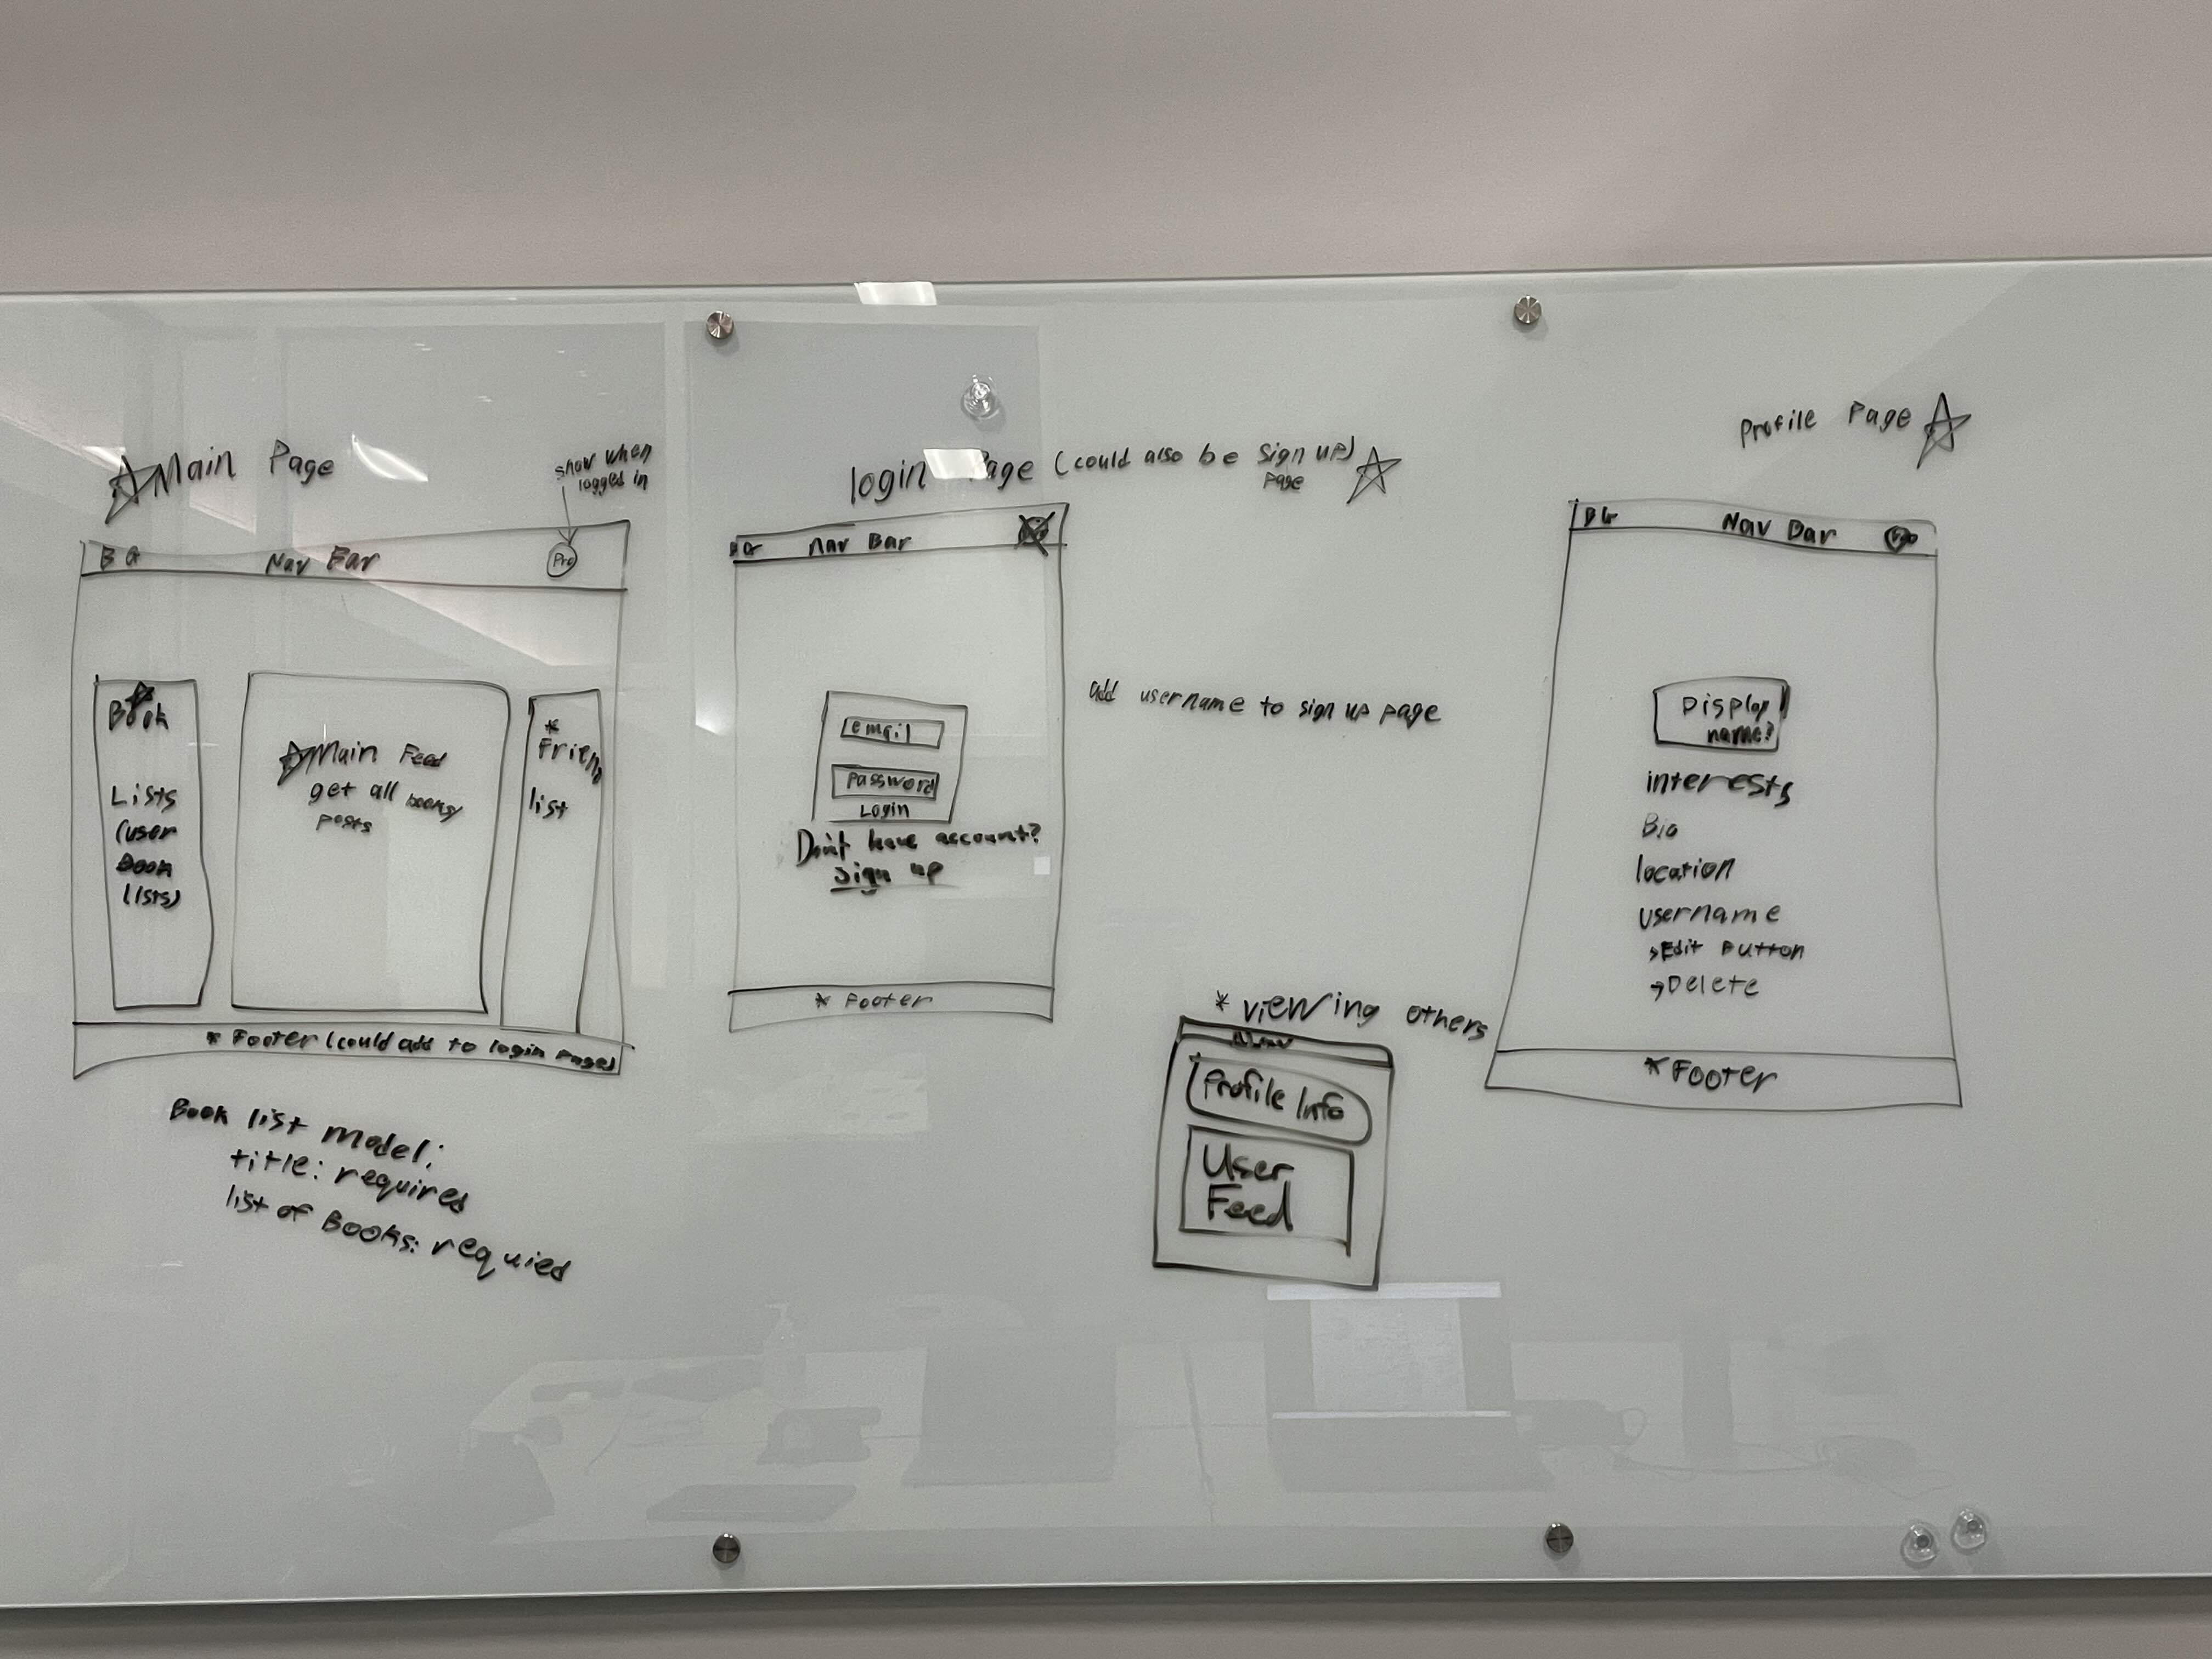 Main Page
show when
logged in
BG Nav Bar Pro
Book
Lists
(user
Book
lists)
Main Feed
get all books/
posts
*
Friend
list
* Footer (could add to login page)
Book list model:
title: requires
list of Books: requied
login Page (could also be sign up)
page
BG Nav Bar
email
password
Login
Don't have account?
sign up
* Footer
add username to sign up page
* viewing others
Nav
Profile Info
User
Feed
Profile Page
BG Nav Bar Pro
Display
name?
interests
Bio
location
username
→Edit Button
→Delete
* Footer